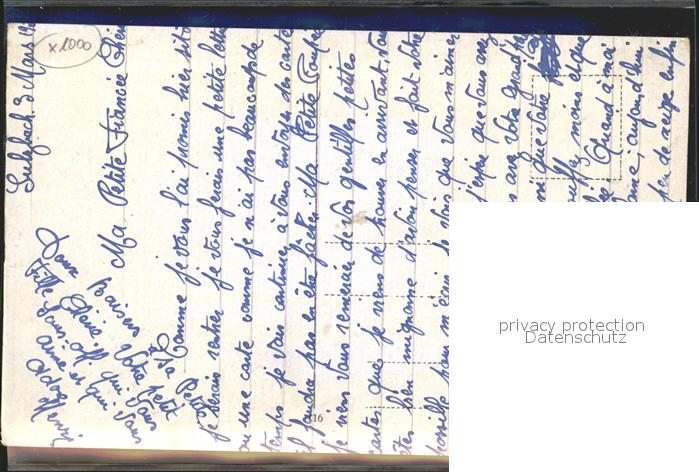 Sulzbach 3 Mars 19
x1000
Ma Petite Fiancée Chérie
Comme je vous l'ai promis hier sitôt
je serais rentrer je vous ferais une petite lettre
ou une carte comme je n'ai pas beaucoup de
temps je vais continuer à vous envoyer des cartes
il faudra pas en être fâchée Ma Petite Poupée
je viens vous remercier de vos gentilles petites
cartes que je viens de trouver en arrivant, vous
êtes bien mignonne d'avoir penser et fait votre
possible pour m'écrire je vois que vous m'aimer
j'espère que vous avez
avec votre Grand
que votre
moins que
Quand à moi
aujourd'hui
peu de neige enfin
Doux baisers à Ma Petite
Fille Chérie. Votre petit
Sous-off. qui vous
aime et qui vous
adore
Henri
116
privacy protection
Datenschutz